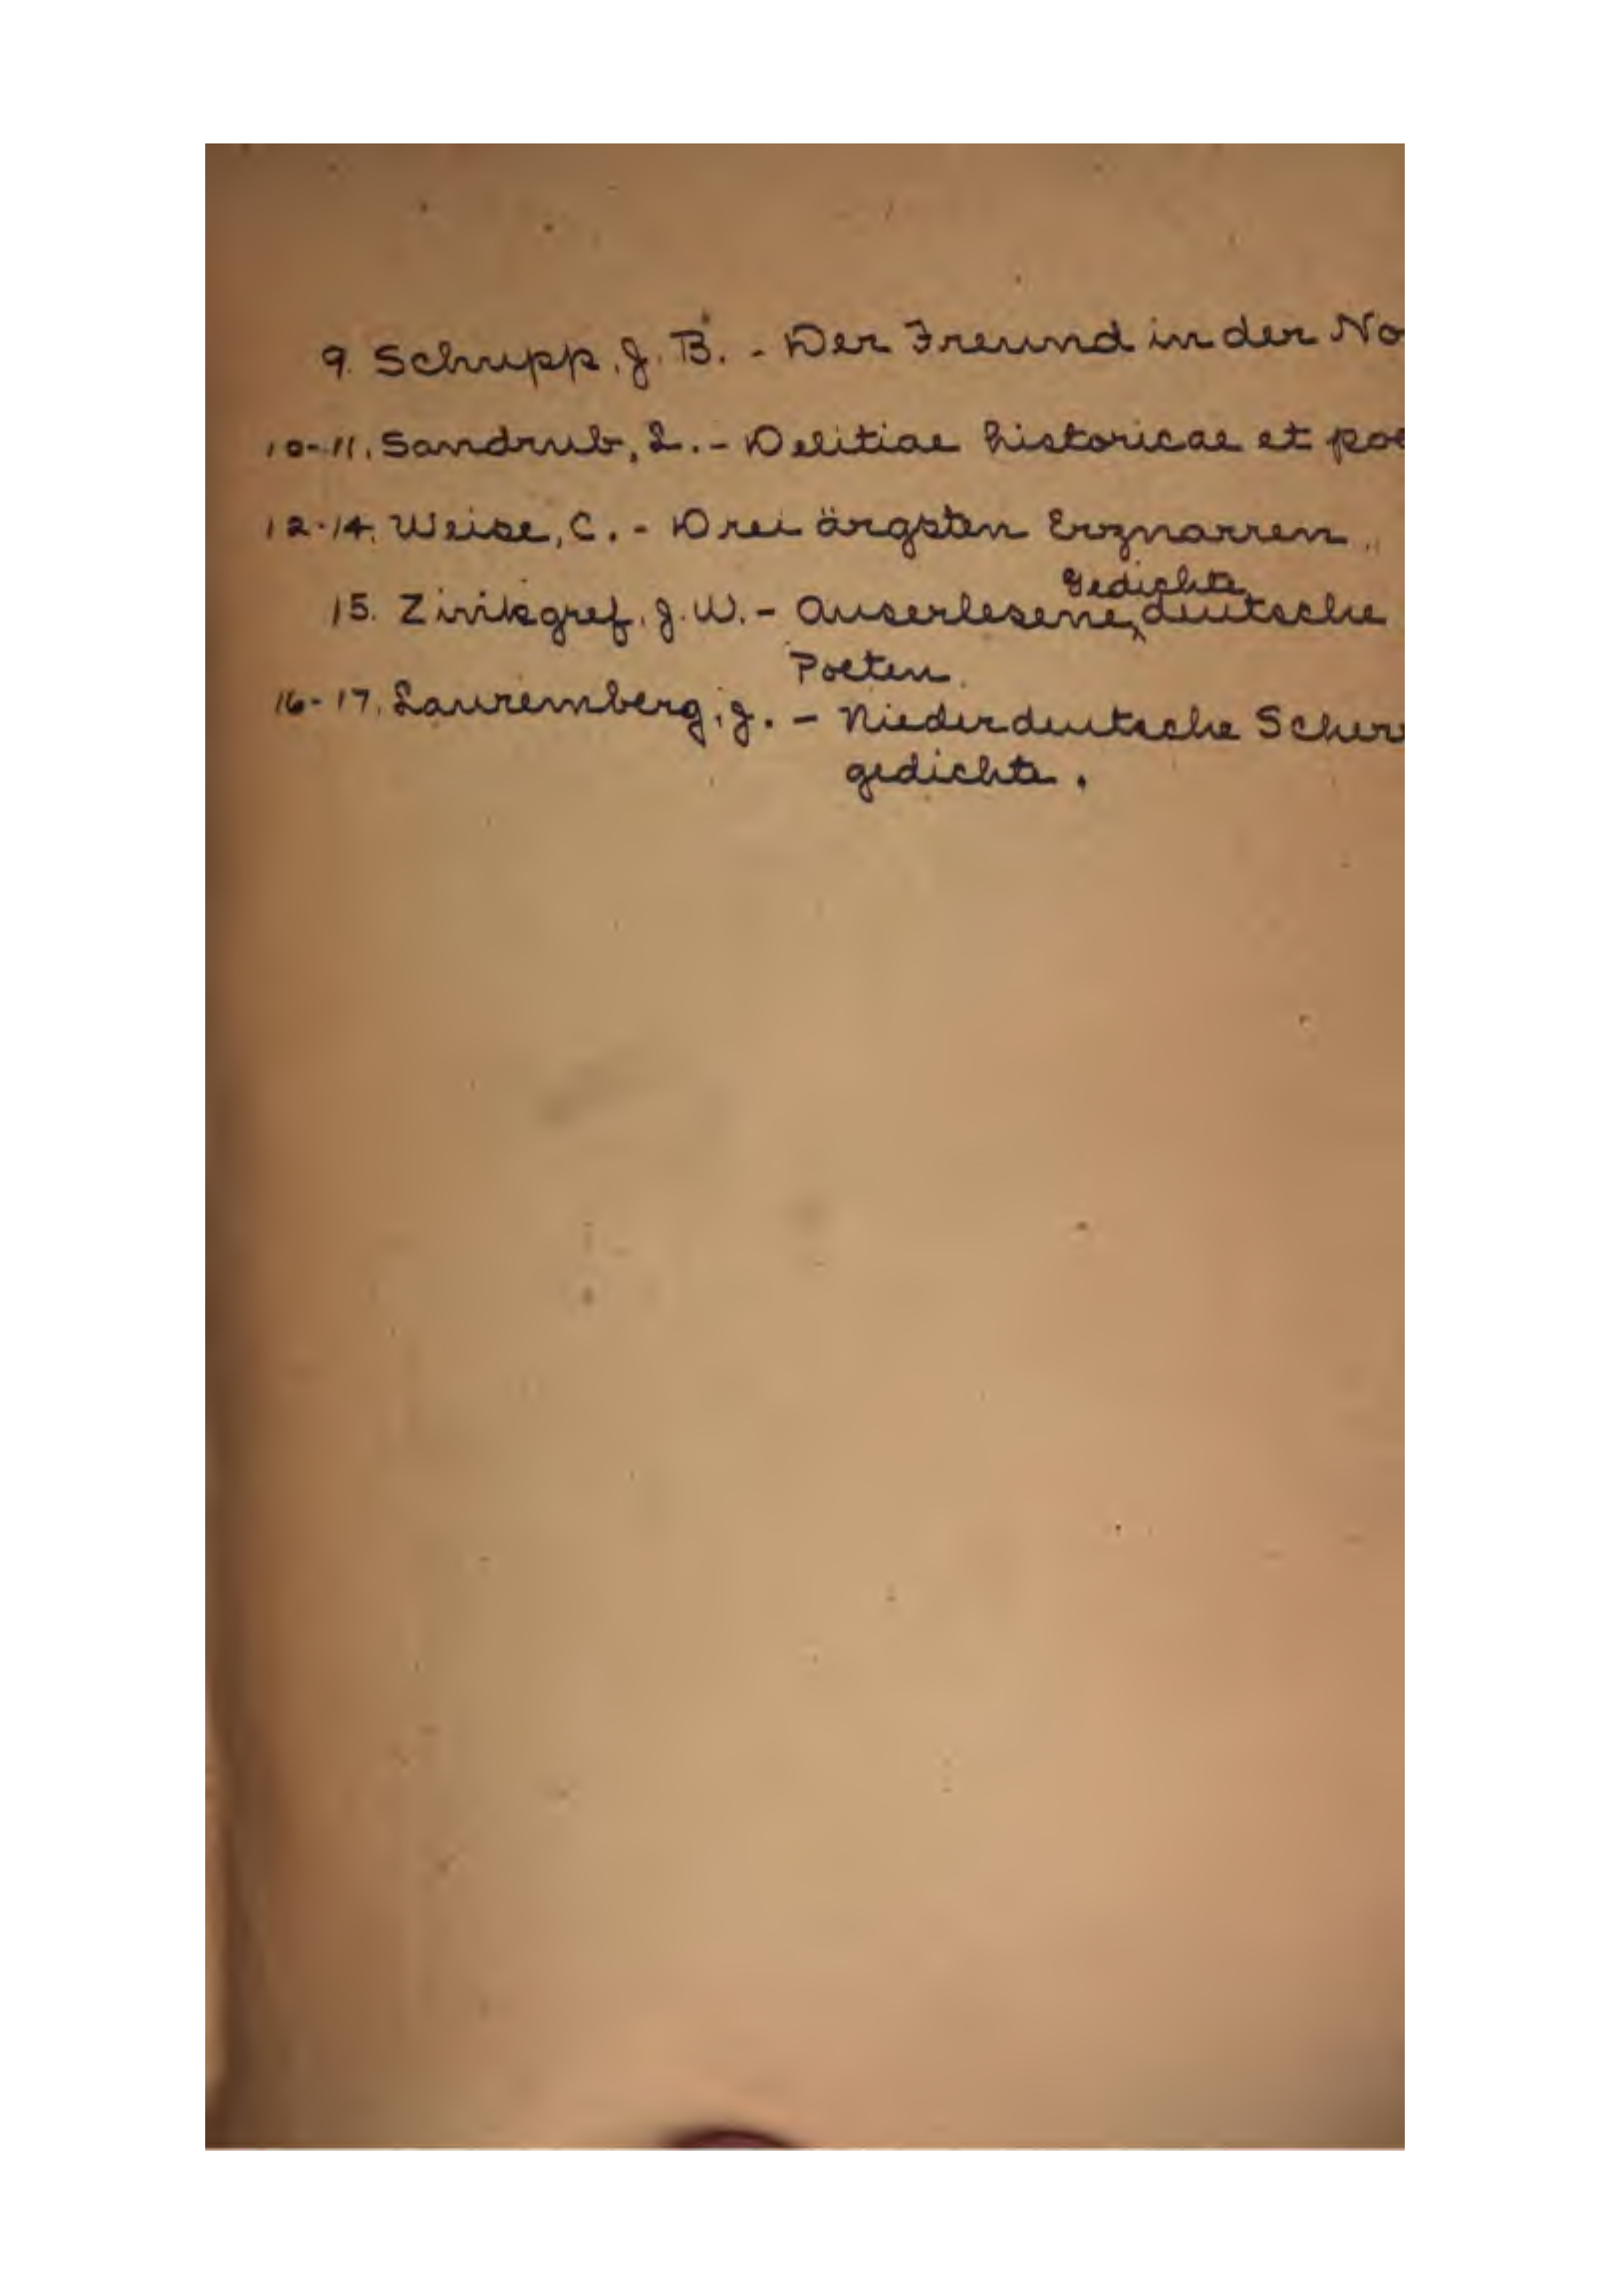 9. Schupp, J. B. - Der Freund in der No
10-11. Sandrub, L. - Delitiae historicae et poe
12-14. Weise, C. - Drei ärgsten Erznarren.
Gedichte
15. Zinkgref, J. W. - Auserlesene deutsche
Poeten.
16-17. Lauremberg, J. - Niederdeutsche Scherz
gedichte.